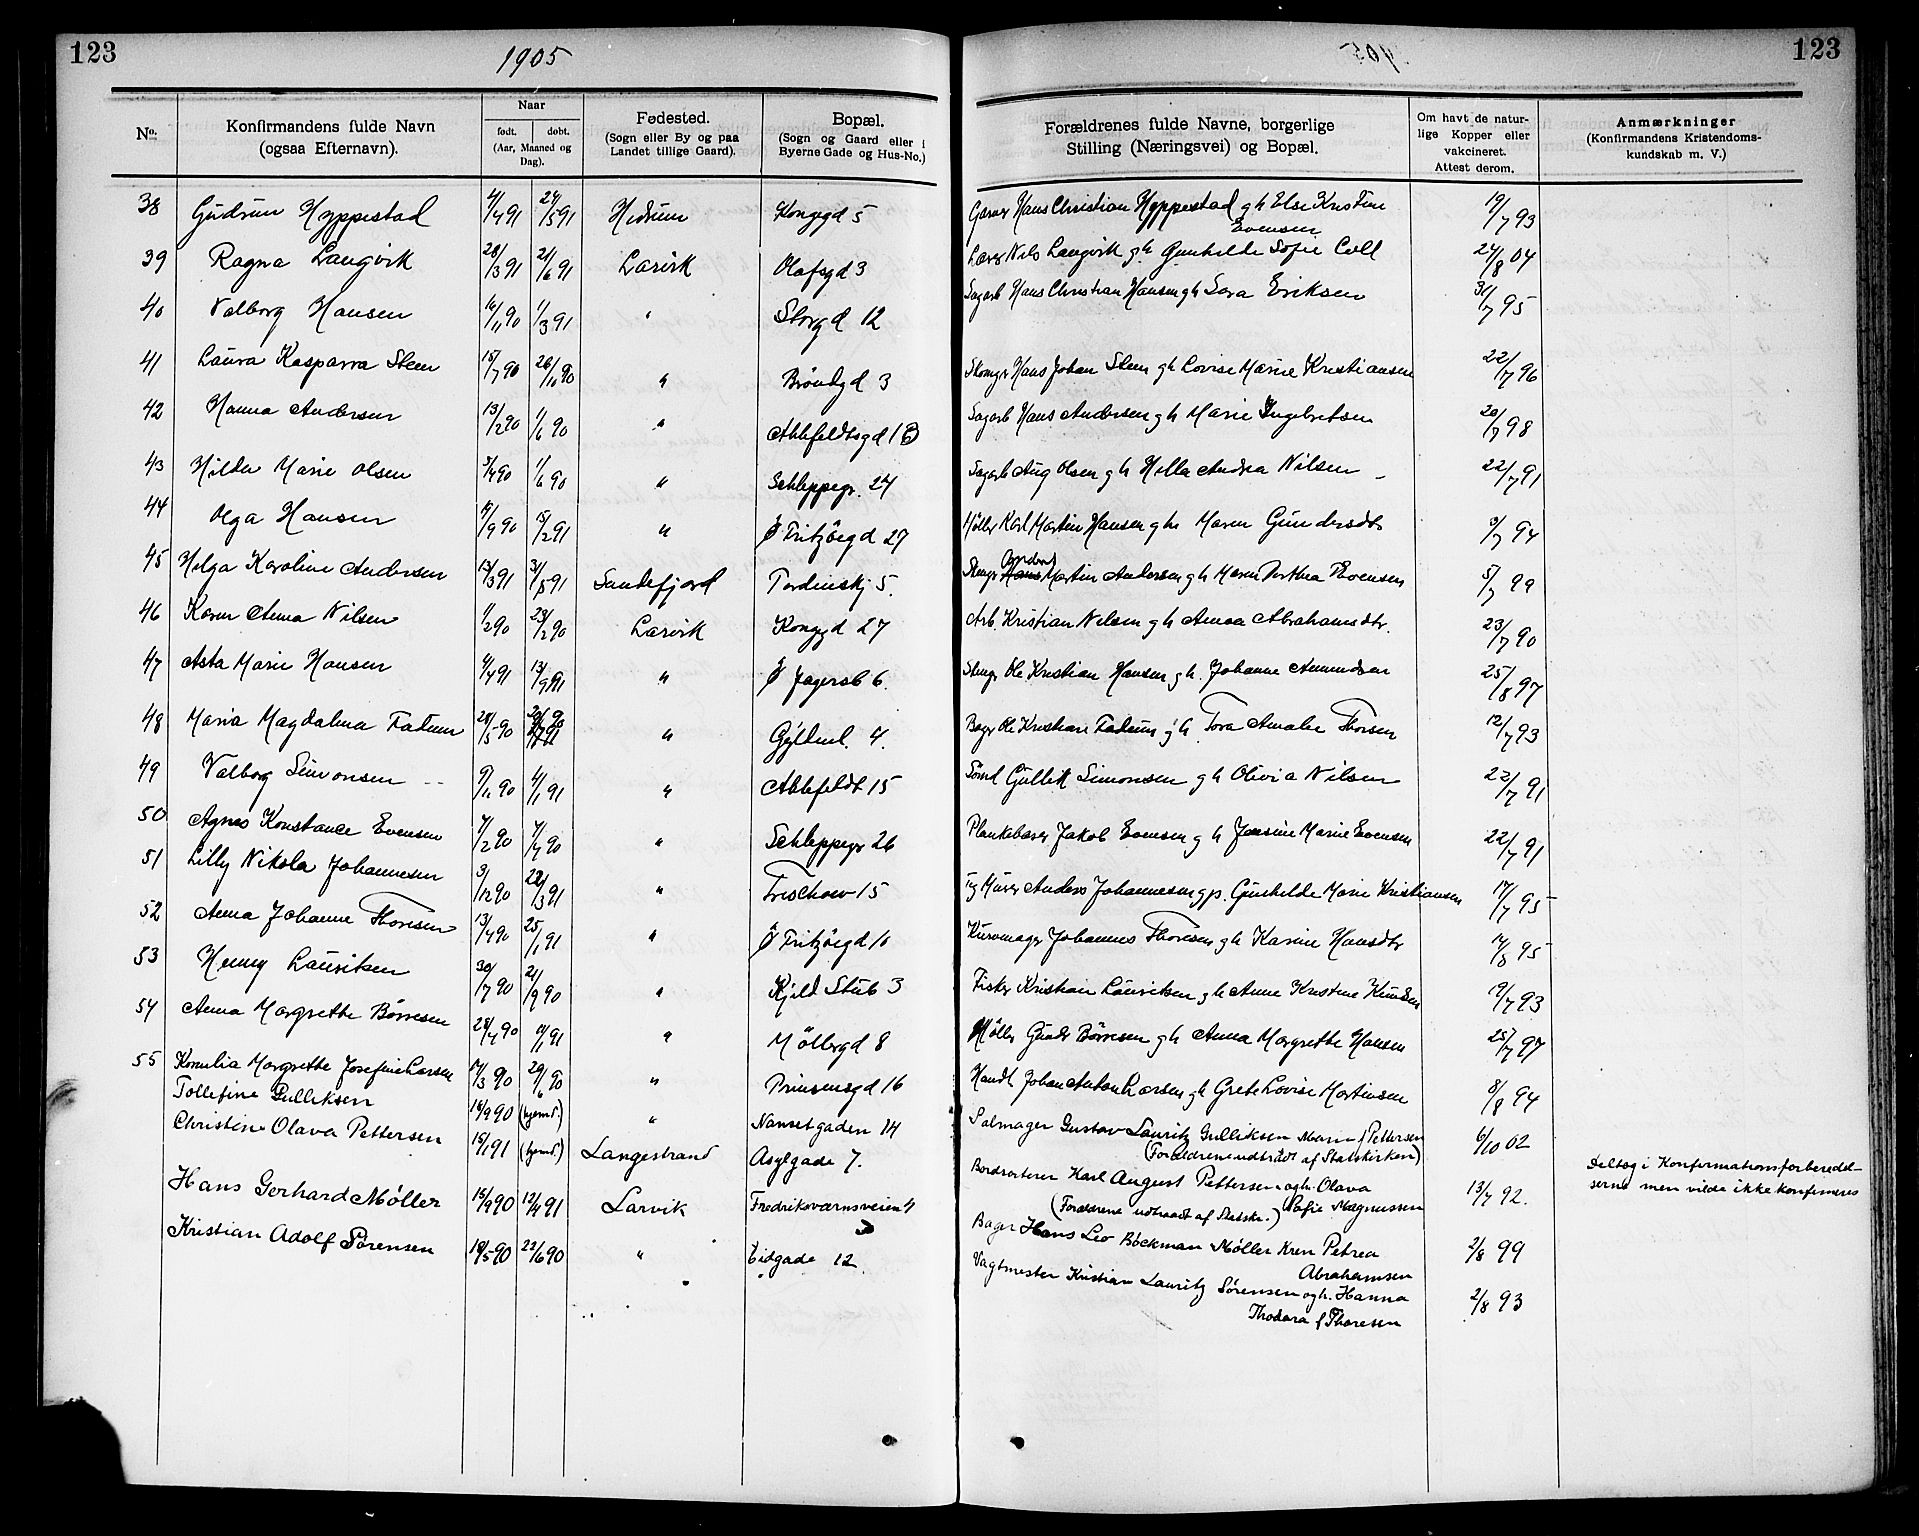 123
1905
123
No.
Konfirmandens fulde Navn
(ogsaa Efternavn).
Naar
født.
døbt.
(Aar, Maaned og Dag).
Fødested.
(Sogn eller By og paa
Landet tillige Gaard).
Bopæl.
(Sogn og Gaard eller i
Byerne Gade og Hus-No.)
Forældrenes fulde Navne, borgerlige
Stilling (Næringsvei) og Bopæl.
Om havt de natur-
lige Kopper eller
vakcineret.
Attest derom.
Anmærkninger
(Konfirmandens Kristendoms-
kundskab m. V.)
38 Gudrun Hyppestad 4/4 91 24/5 91 Hedrum Kongegd 5 Garver Hans Christian Hyppestad gh Else Kristine Evensen 19/7 93
39 Ragna Langvik 28/3 91 21/6 91 Larvik Olafsgd 3 Lærer Nils Langvik gh Gunhilde Sofie Coll 24/8 04
40 Valborg Hansen 16/11 90 1/3 91 " Storgd 12 Sagarb Hans Christian Hansen gh Sara Eriksen 31/7 95
41 Laura Kasparra Steen 15/7 90 26/10 90 " Bröndgd 3 Skomgr Hans Johan Steen gh Lovise Marie Kristiansen 22/7 96
42 Hanna Andersen 13/2 90 1/6 90 " Ahlefeldtsgd 13 Sagarb Hans Andersen gh Marie Ingebretsen 20/7 98
43 Hilda Marie Olsen 3/4 90 1/6 90 " Schleppegr. 24 Sagarb Aug Olsen gh Hella Andrea Nilsen 22/7 91
44 Olga Hansen /9 90 15/2 91 " Ø Fritzöegd 27 Möller Karl Martin Hansen gh Maren Gundersdtr 3/7 94
45 Helga Karoline Andersen 13/3 91 31/5 91 Sandefjord Tordenskj 5. Stengr Anders Martin Andersen gh Maren Dorthea Evensen 5/7 99
46 Karen Anna Nilsen 1/2 90 23/2 90 Larvik Konggd 27 Arb. Kristian Nilsen gh Anna Abrahamsdtr. 23/7 90
47 Asta Marie Hansen 4/4 91 13/9 91 " Ø Jegersb 6. Stengr Ole Kristian Hansen gh. Johanne Amundsen 25/8 97
48 Maria Magdalena Fadum 28/5 90 " Gyldenl. 4. Bager Ole Kristian Fadum gh Tora Amalie Thorsen 12/7 93
49 Valborg Simonsen 9/11 90 4/1 91 " Ahlefeldt 15 Sömd Gullik Simonsen gh Olivia Nilsen 22/7 91
50 Agnes Konstance Evensen 7/2 90 7/4 90 " Schleppegr 26 Plankebærer Jakob Evensen gh Jensine Marie Evensen 22/7 91
51 Lilly Nikola Johannesen 3/12 90 22/3 91 " Treschow 15 Murer Anders Johannesen gh. Gunhilde Marie Kristiansen 17/7 95
52 Anna Johanne Thoresen 13/4 90 25/1 91 " Ø Fritzöegd 10 Kurvmager Johannes Thoresen gh Karine Hansdtr 14/8 95
53 Henny Lauritsen 30/7 90 21/9 90 " Kjeld Stub 3 Fisker Kristian Lauritsen gh Anne Kristine Knudsen 19/7 93
54 Anna Margrethe Börresen 28/4 90 11/1 91 " Möllergd 8 Möller Gunder Börresen gh Anna Margrethe Hansen 25/7 97
55 Kornelia Margrethe Josefine Larsen 14/3 90 29/6 90 " Prinsensgd 16 Handl Johan Anton Larsen gh Grete Lovise Martinsen 8/8 94
Tollefine Gulliksen 14/9 90 (hjemd.) " Nansetgaden 14 Salmager Gustav Lauritz Gulliksen Marie f Pettersen (Forældrene udtrådt af Statskirken) 6/10 02
Christine Olava Pettersen 15/1 91 (hjemd.) Langestrand Asylgade 7. Bordsorterer Karl August Pettersen ogh. Olava Sofie Magnussen (Forældrene udtraadt af Statsk.) 13/7 92. Deltog i Konfirmationsforberedel-
serne men vilde ikke konfirmeres
Hans Gerhard Møller 15/9 90 12/4 91 Larvik Fredriksværnsveien 4 Bager Hans Leo Bøckman Møller Kren Petrea Abrahamsen 2/8 99
Kristian Adolf Sørensen 18/5 90 22/6 90 " Eidgade 12 Vagtmester Kristian Lauritz Sørensen ogh. Hanna Thodora f Thoresen 2/8 93